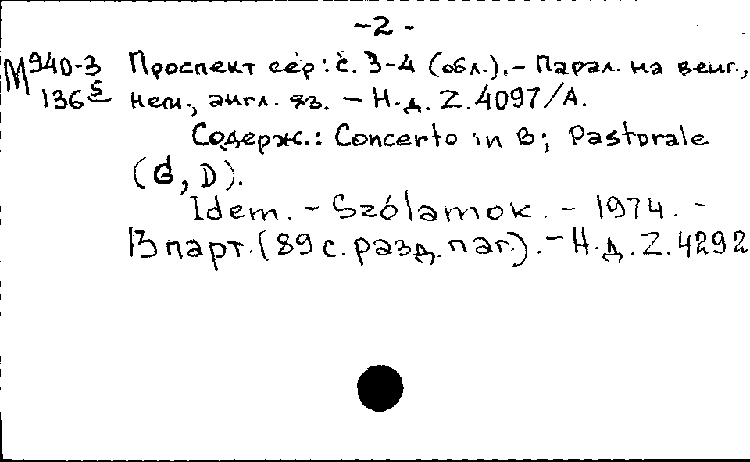 -2-
М940-3 Проспект сер: с. 3-4 (обл.).- Парал. на венг.,
136 5 нем., англ. яз. - Н.д. Z.4097/A.
Содерж.: Concerto in B; Pastorale
(G, D).
Idem. - Szólamok. - 1974. -
13 парт. (89 с. разд. паг.). - Н.д. Z.4292